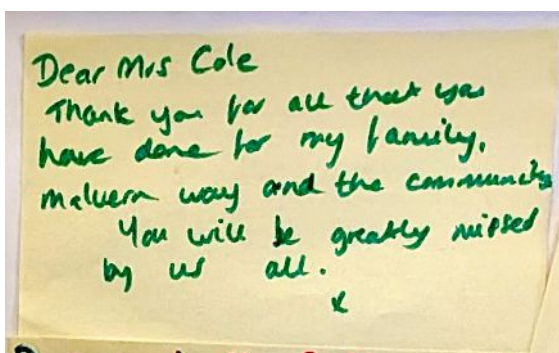 Dear Mrs Cole
Thank you for all that you
have done for my family,
malvern way and the community
You will be greatly missed
by us all.
x